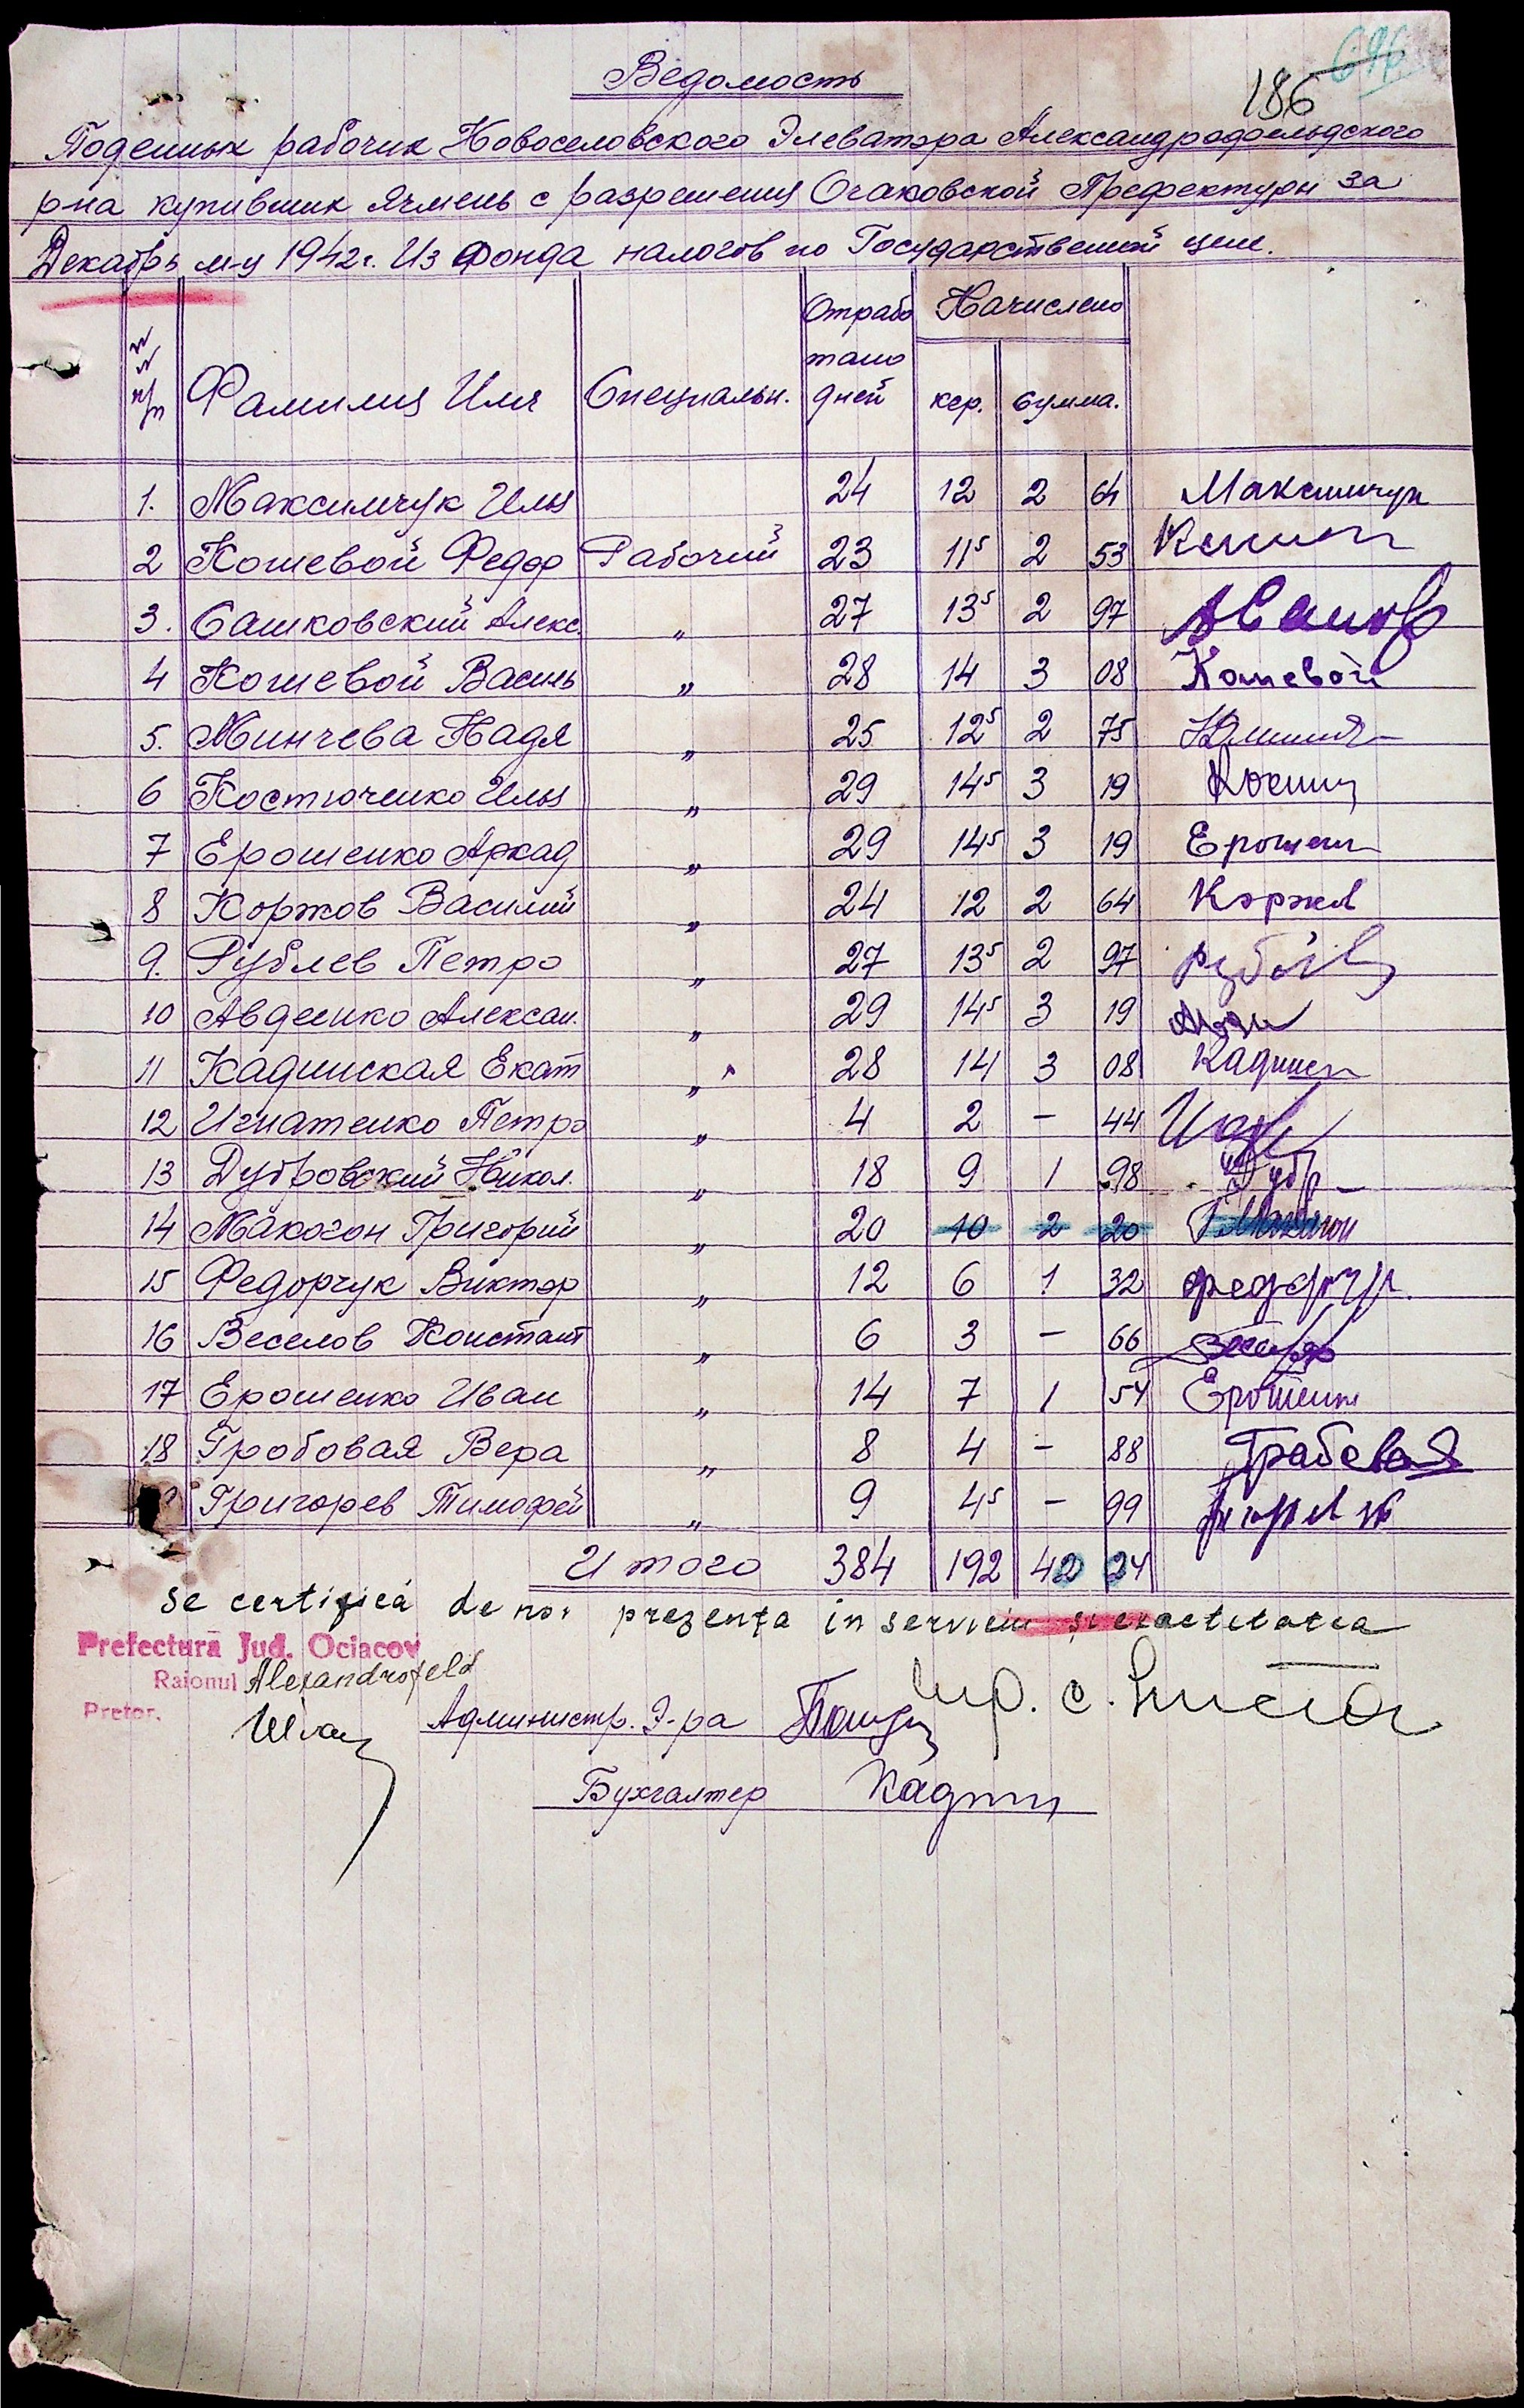 696
186
Ведомость
Поденных рабочих Новоселовского Элеватора Александрофельдского
р-на купивших ячмень с разрешения Очаковской Префектуры за
Декабрь м-ц 1942г. Из Фонда налогов по Государственной цене.
№№ п/п Фамилия Имя Специальн. Отработано дней Начислено кгр. сумма.
1. Максимчук Илья 24 12 2 64 Максимчук
2 Кошевой Федор Рабочий 23 11⁵ 2 53
3. Сашковский Алекс. " 27 13⁵ 2 97
4 Кошевой Василь " 28 14 3 08 Кошевой
5. Минчева Надя " 25 12⁵ 2 75
6 Костюченко Илья " 29 14⁵ 3 19
7 Ерошенко Аркад " 29 14⁵ 3 19 Ерошен
8 Коржов Василий " 24 12 2 64 Коржов
9. Рублев Петро " 27 13⁵ 2 97
10 Авденко Алексан. " 29 14⁵ 3 19
11 Кадинская Екат " 28 14 3 08 Кадинск
12 Игнатенко Петро " 4 2 – 44
13 Дубровский Никол. " 18 9 1 98 Дубр
14 Макогон Григорий " 20 10 2 20
15 Федорчук Виктор " 12 6 1 32 Федорчук
16 Веселов Констант " 6 3 – 66
17 Ерошенко Иван " 14 7 1 54 Ерошенк
18 Гробовая Вера " 8 4 – 88 Грабовая
Григорев Тимофей " 9 4⁵ – 99
Итого 384 192 42 24
se certifică de noi prezența in serviciu și exactitatea
Prefectura Jud. Ociacov
Raionul Alexandrofeld
Pretor.
Администр. Э-ра
Бухгалтер Кадин